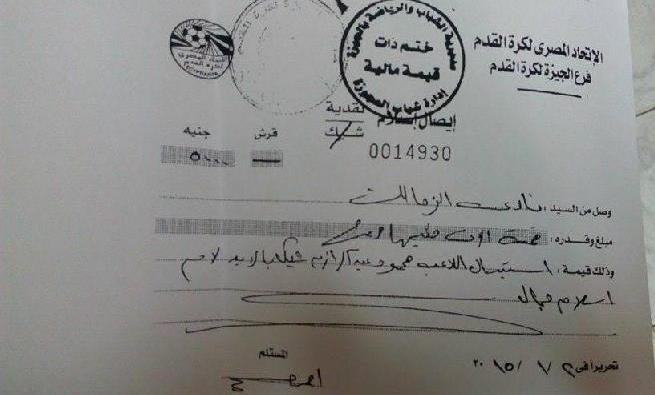 الاتحاد المصرى لكرة القدم
فرع الجيزة لكرة القدم
مديرية الشباب والرياضة بالجيزة
ختم ذات
قيمة مالية
إدارة شباب
إيصال إستلام
نقدية
شيك
0014930
قرش
جنيه
٥٠٠٠
وصل من السيد: نادى الزمالك
مبلغ وقدره: خمسة آلاف جنيها
وذلك قيمة: استبدال اللاعب محمود عبد الرازق شيكابالا بدلا من
اسلام جمال
المستلم
تحريرا فى ٢ / ١ / ٢٠١٥